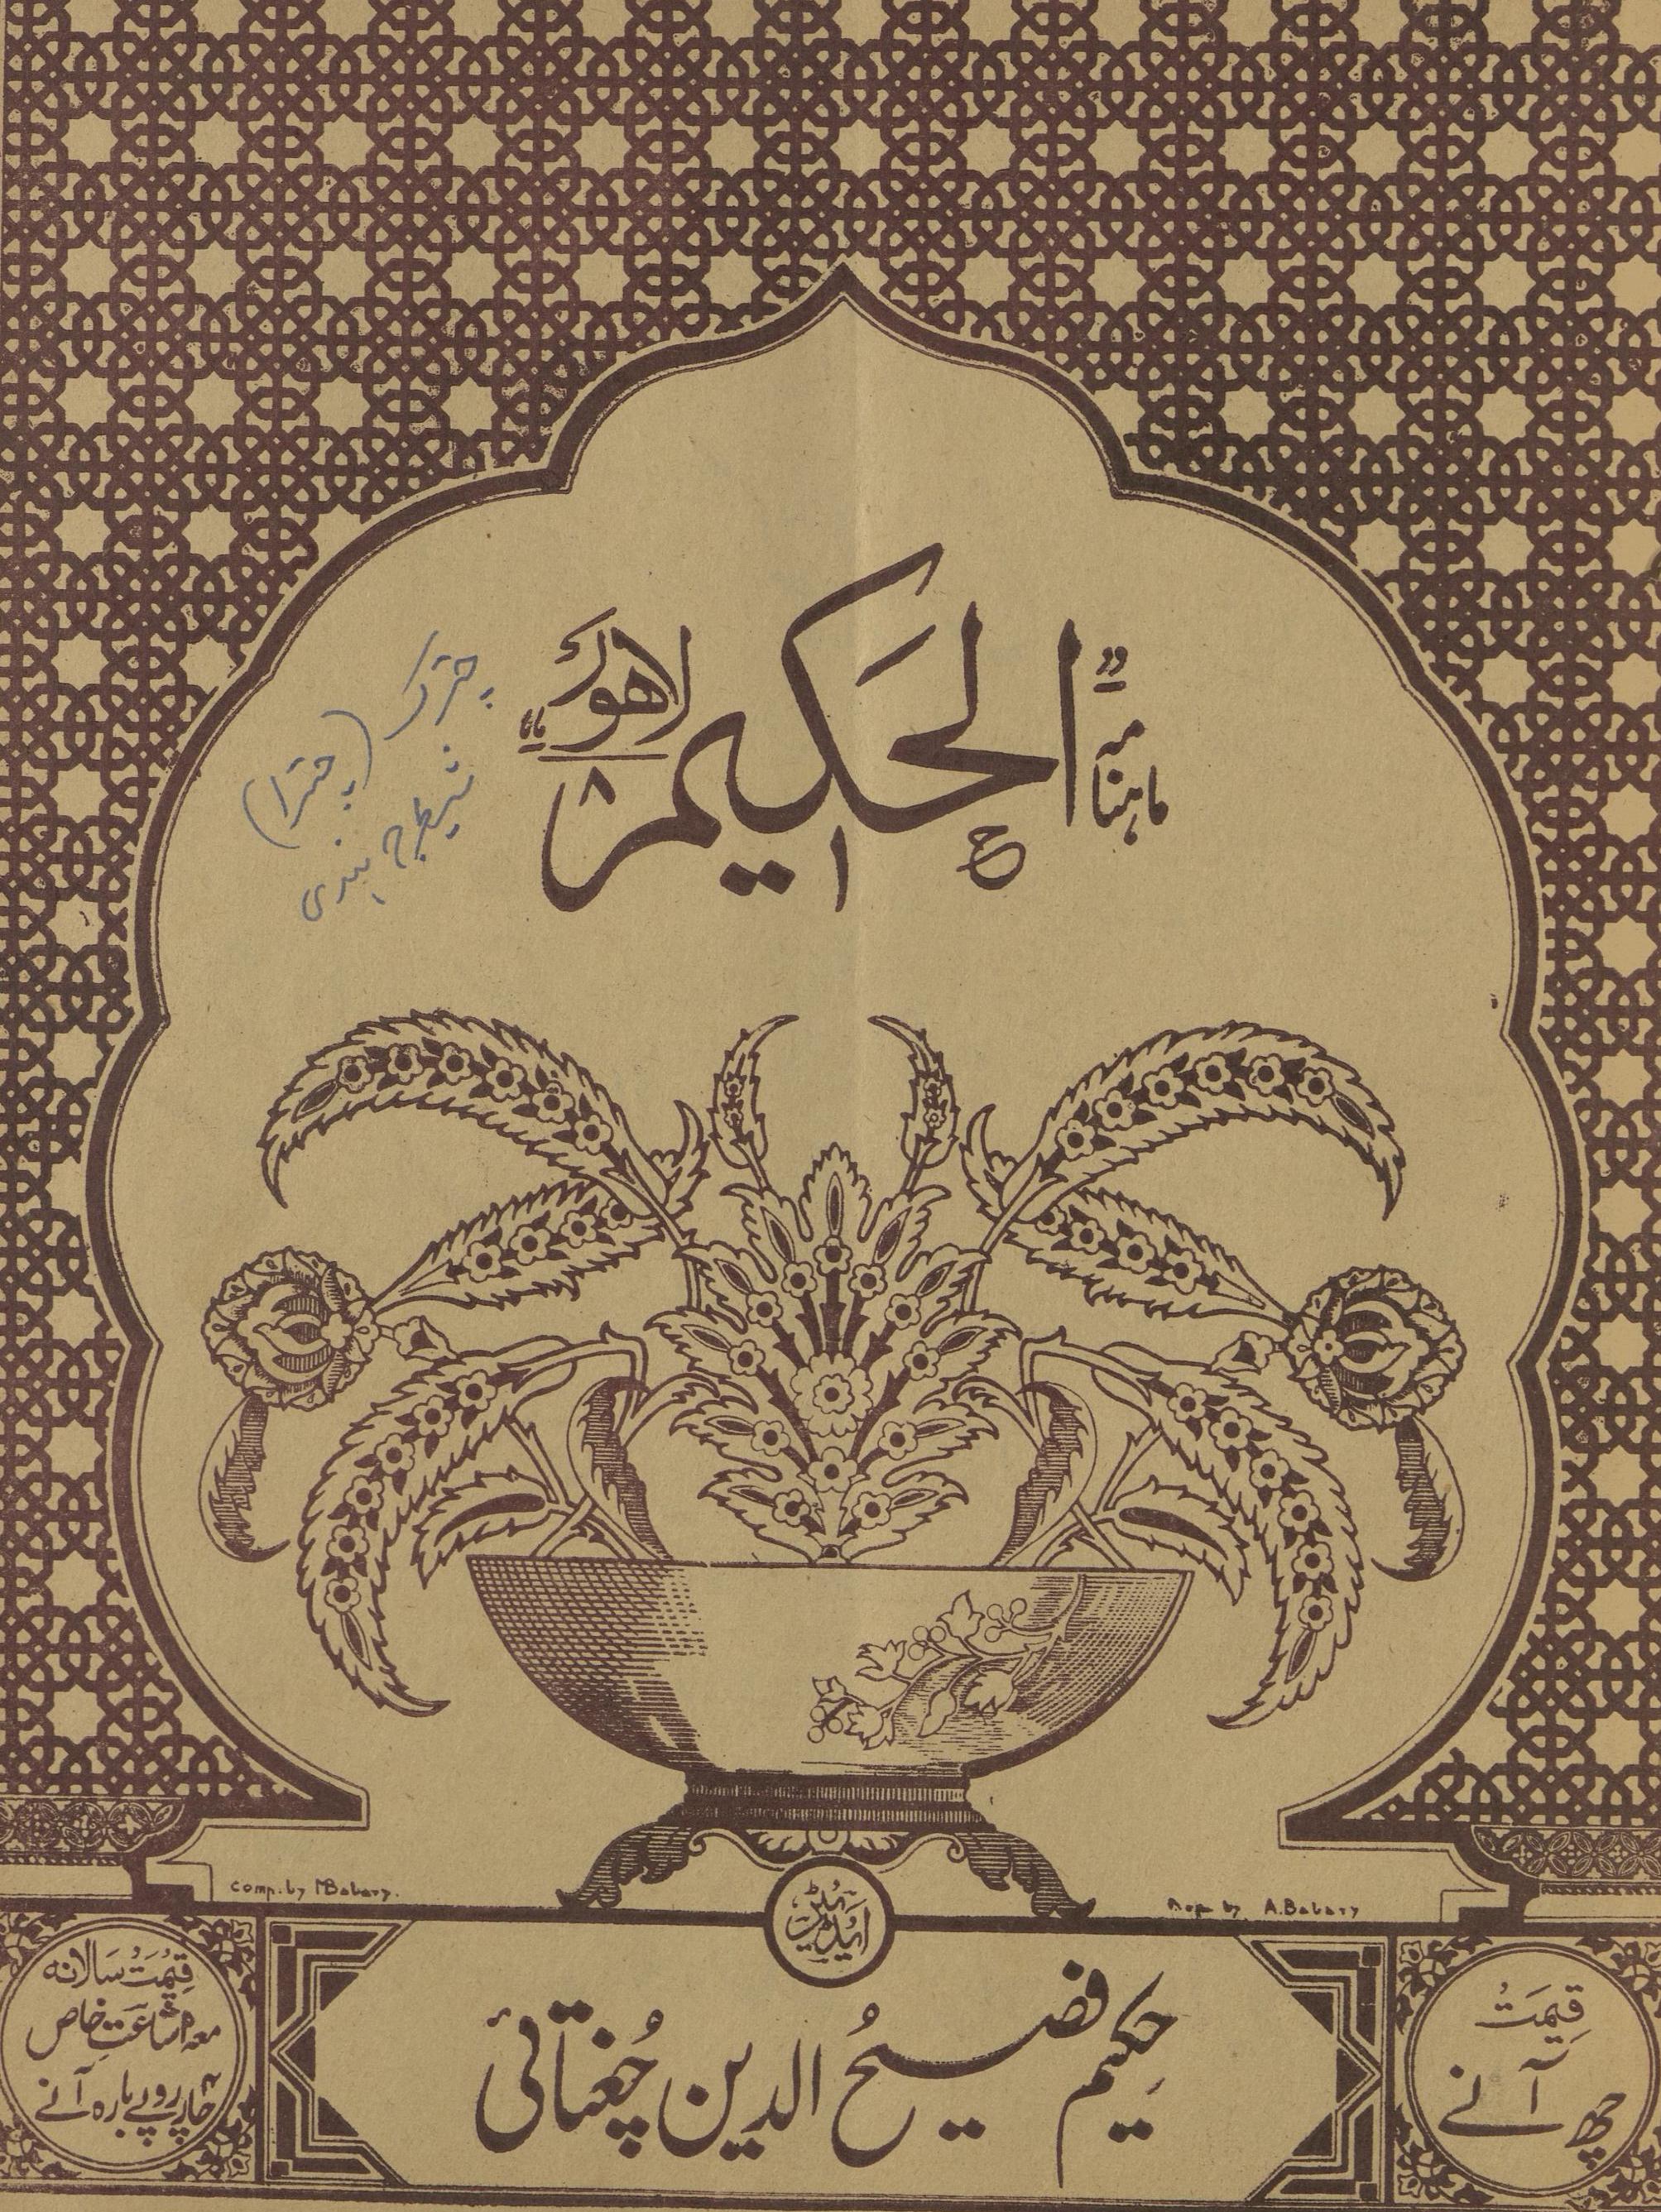 ماہنامہ "الحکیم لاہور"
چترک (چترا)
شیطرج ہندی
comp. by MBabary.
by A.Babary
ایڈیٹر
حکیم فصیح الدین چغتائی
قیمت
چھ آنے
قیمت سالانہ
معہ اشاعت خاص
چار روپے بارہ آنے